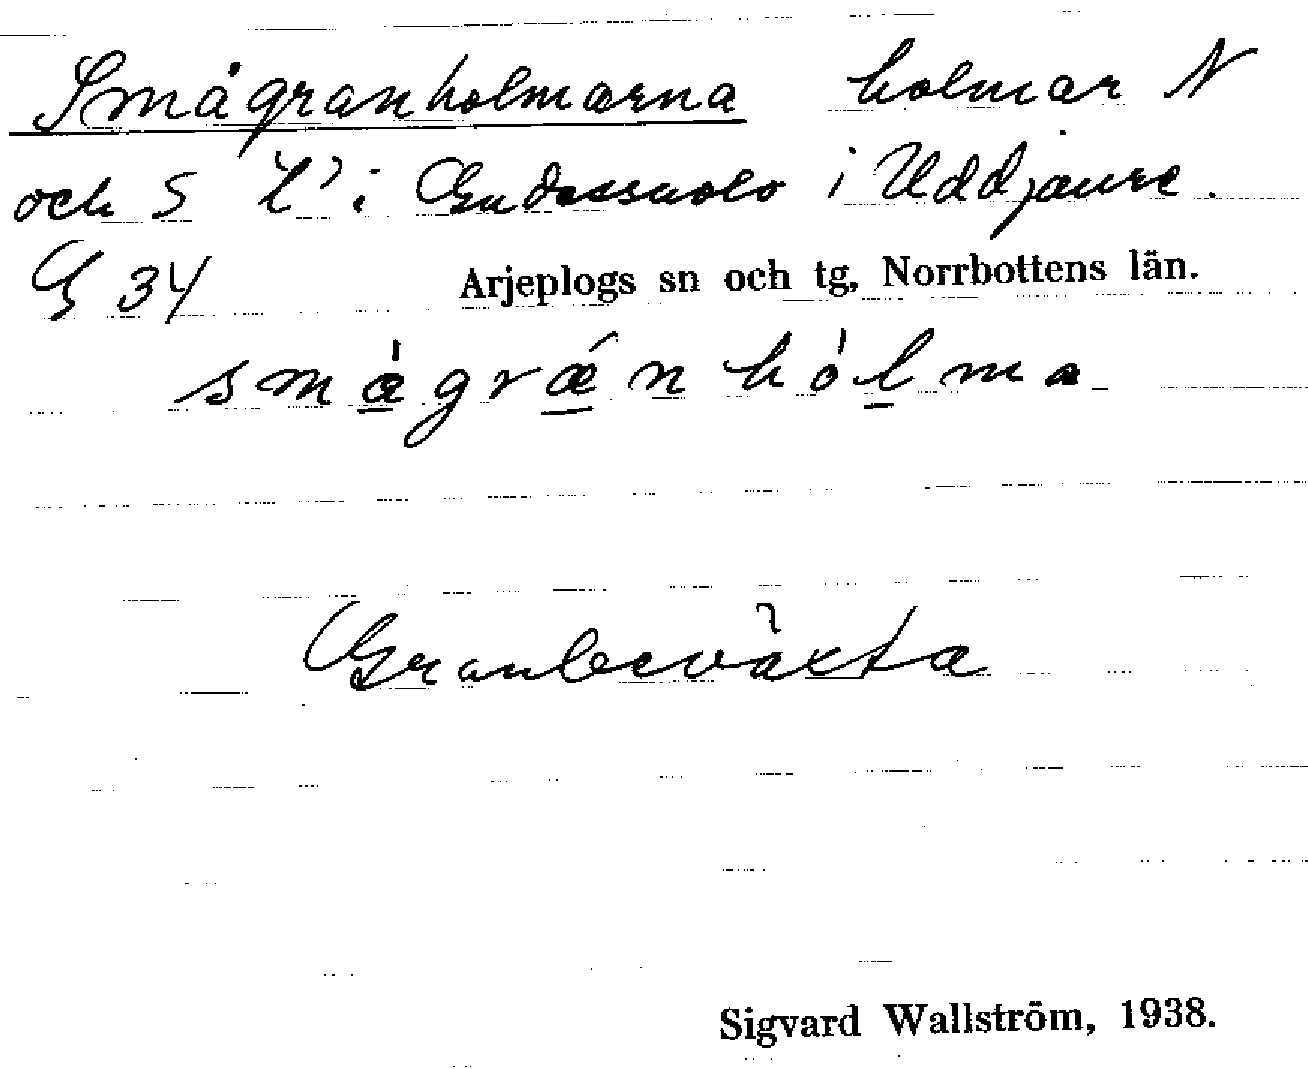 Smågranholmarna holmar N
och S "l" i Gudossuolo i Uddjaure.
G 34 Arjeplogs sn och tg, Norrbottens län.
smågræ´n hólma
Granbeväxta
Sigvard Wallström, 1938.